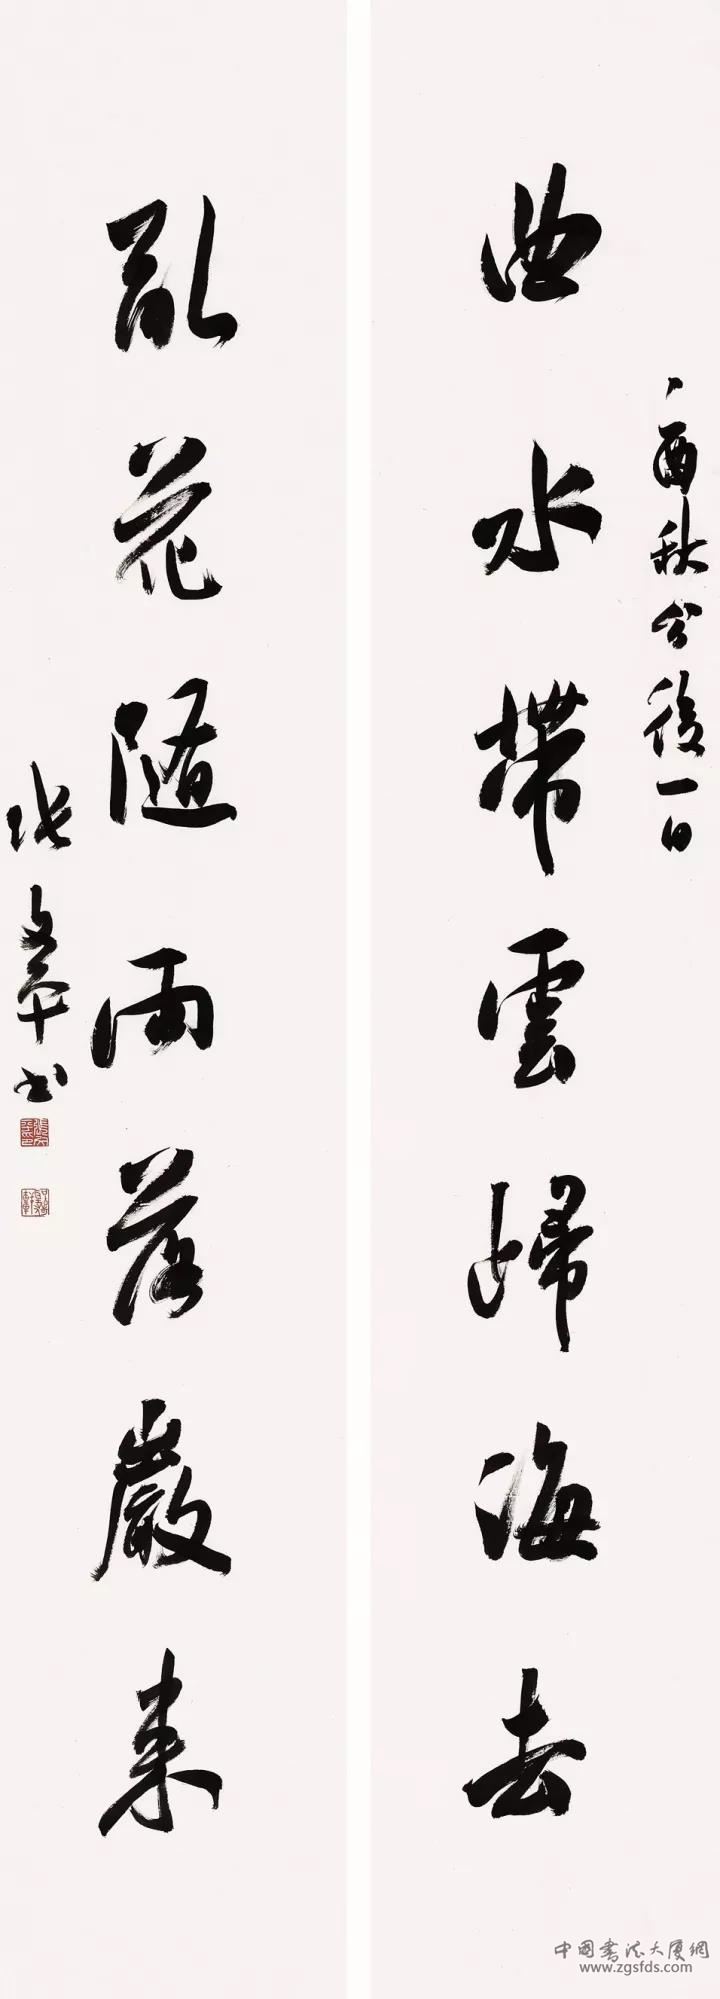 曲水帶雲歸海去
丁酉秋分後一日
亂花隨雨落巖來
張文平書
中国書法大廈網
www.zgsfds.com